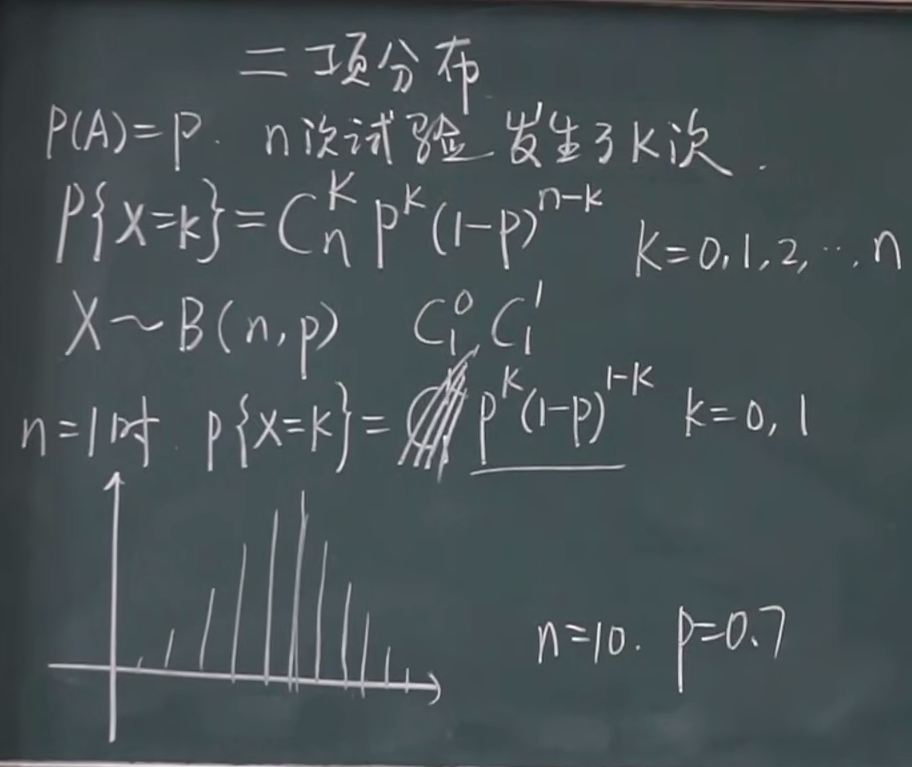 二项分布
P(A)=P. n次试验 发生了K次.
P{X=k}=C_n^k P^k (1-p)^{n-k} K=0,1,2,…,n
X～B(n,p) C_1^0 C_1^1
n=1时 P{X=k}= p^k (1-p)^{1-k} k=0,1
n=10. p=0.7